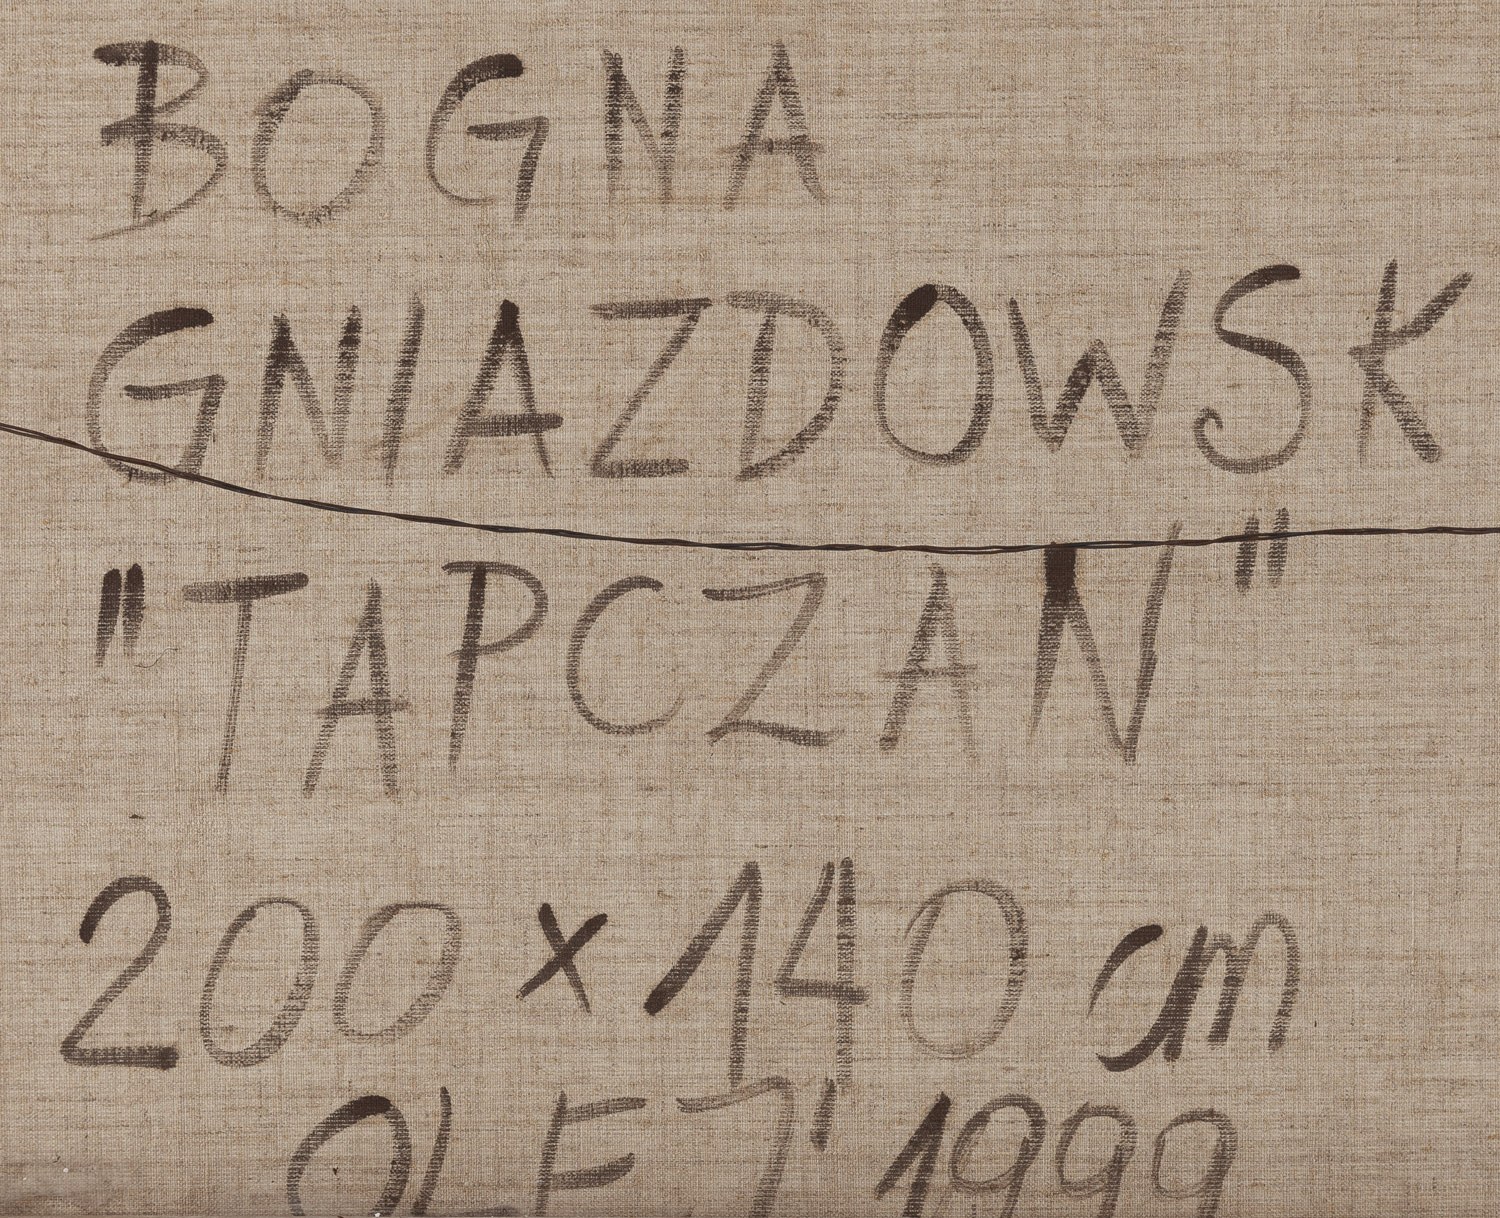 BOGNA
GNIAZDOWSK
"TAPCZAN"
200 x 140 cm
OLEJ' 1999